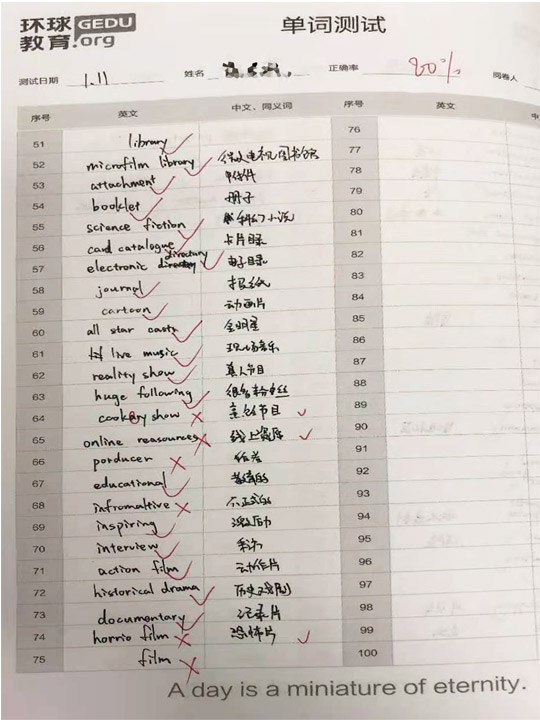 环球 GEDU
教育.org
单词测试
测试日期 1.11 姓名 正确率 80% 阅卷人
序号 英文 中文、同义词 序号 英文
51 library 76
52 microfilm library 微文电机图书馆 77
53 attachment 附件 78
54 booklet 册子 79
55 science fiction 科幻小说 80
56 card catalogue 卡片目录 81
57 electronic directary 电子目录 82
58 journal 报纸 83
59 cartoon 动画片 84
60 all star casts 全明星 85
61 live music 现场音乐 86
62 reality show 真人节目 87
63 huge following 很多粉丝 88
64 cookery show 节目 89
65 online reasources 线上资库 90
66 porducer 91
67 educational 教育的 92
68 infromaltive 不正式的 93
69 inspiring 激励 94
70 interview 采访 95
71 action film 动作片 96
72 historical drama 历史戏剧 97
73 documentary 记录片 98
74 horrio film 恐怖片 99
75 film 100
A day is a miniature of eternity.